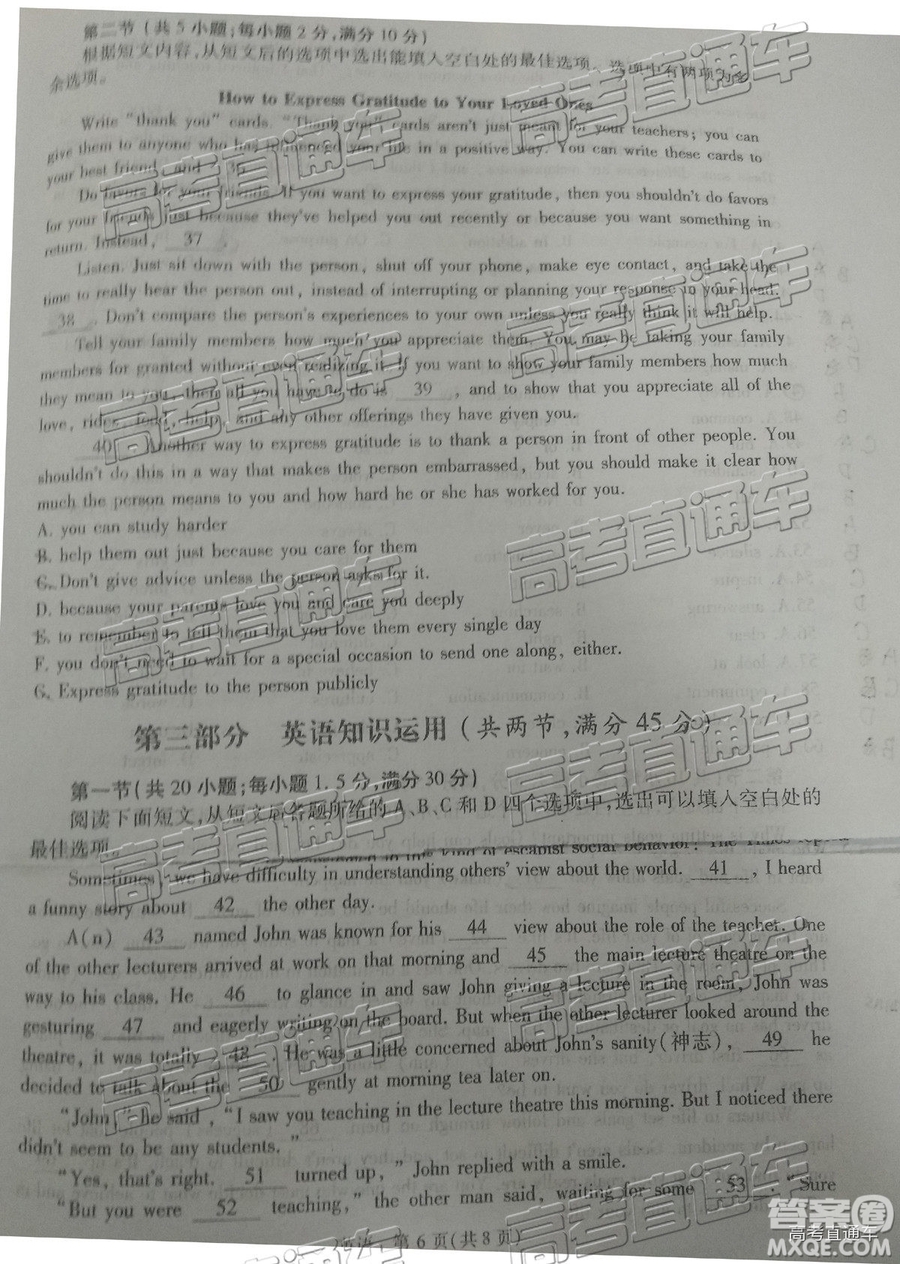 第二节(共5小题;每小题2分,满分10分)
根据短文内容,从短文后的选项中选出能填入空白处的最佳选项。选项中有两项为多
余选项。
How to Express Gratitude to Your Loved Ones
Write "thank you" cards. "Thank you" cards aren't just meant for your teachers; you can
give them to anyone who has influenced your life in a positive way. You can write these cards to
your best friend, and 36 .
Do favors for your friends. If you want to express your gratitude, then you shouldn't do favors
for your friends just because they've helped you out recently or because you want something in
return. Instead, 37 .
Listen. Just sit down with the person, shut off your phone, make eye contact, and take the
time to really hear the person out, instead of interrupting or planning your response in your head.
38 . Don't compare the person's experiences to your own unless you really think it will help.
Tell your family members how much you appreciate them. You may be taking your family
members for granted without even realizing it. If you want to show your family members how much
they mean to you, then all you have to do is 39 , and to show that you appreciate all of the
love, rides, food, help, and any other offerings they have given you.
40 . Another way to express gratitude is to thank a person in front of other people. You
shouldn't do this in a way that makes the person embarrassed, but you should make it clear how
much the person means to you and how hard he or she has worked for you.
A. you can study harder
B. help them out just because you care for them
C. Don't give advice unless the person asks for it.
D. because your parents love you and care you deeply
E. to remember to tell them that you love them every single day
F. you don't need to wait for a special occasion to send one along, either.
G. Express gratitude to the person publicly
第三部分 英语知识运用(共两节,满分45分)
第一节(共20小题;每小题1.5分,满分30分)
阅读下面短文,从短文后各题所给的A、B、C和D四个选项中,选出可以填入空白处的
最佳选项。
Sometimes, we have difficulty in understanding others' view about the world. 41 , I heard
a funny story about 42 the other day.
A(n) 43 named John was known for his 44 view about the role of the teacher. One
of the other lecturers arrived at work on that morning and 45 the main lecture theatre on the
way to his class. He 46 to glance in and saw John giving a lecture in the room, John was
gesturing 47 and eagerly writing on the board. But when the other lecturer looked around the
theatre, it was totally 48 . He was a little concerned about John's sanity(神志), 49 he
decided to talk about the 50 gently at morning tea later on.
"John," he said, "I saw you teaching in the lecture theatre this morning. But I noticed there
didn't seem to be any students."
"Yes, that's right. 51 turned up," John replied with a smile.
"But you were 52 teaching," the other man said, waiting for some 53 . "Sure
英语 第6页(共8页)
高考直通车
高考直通车
高考直通车
高考直通车
高考直通车
高考直通车
高考直通车
高考直通车
高考直通车
高考直通车
答案圈
高考直通车
MXQE.COM